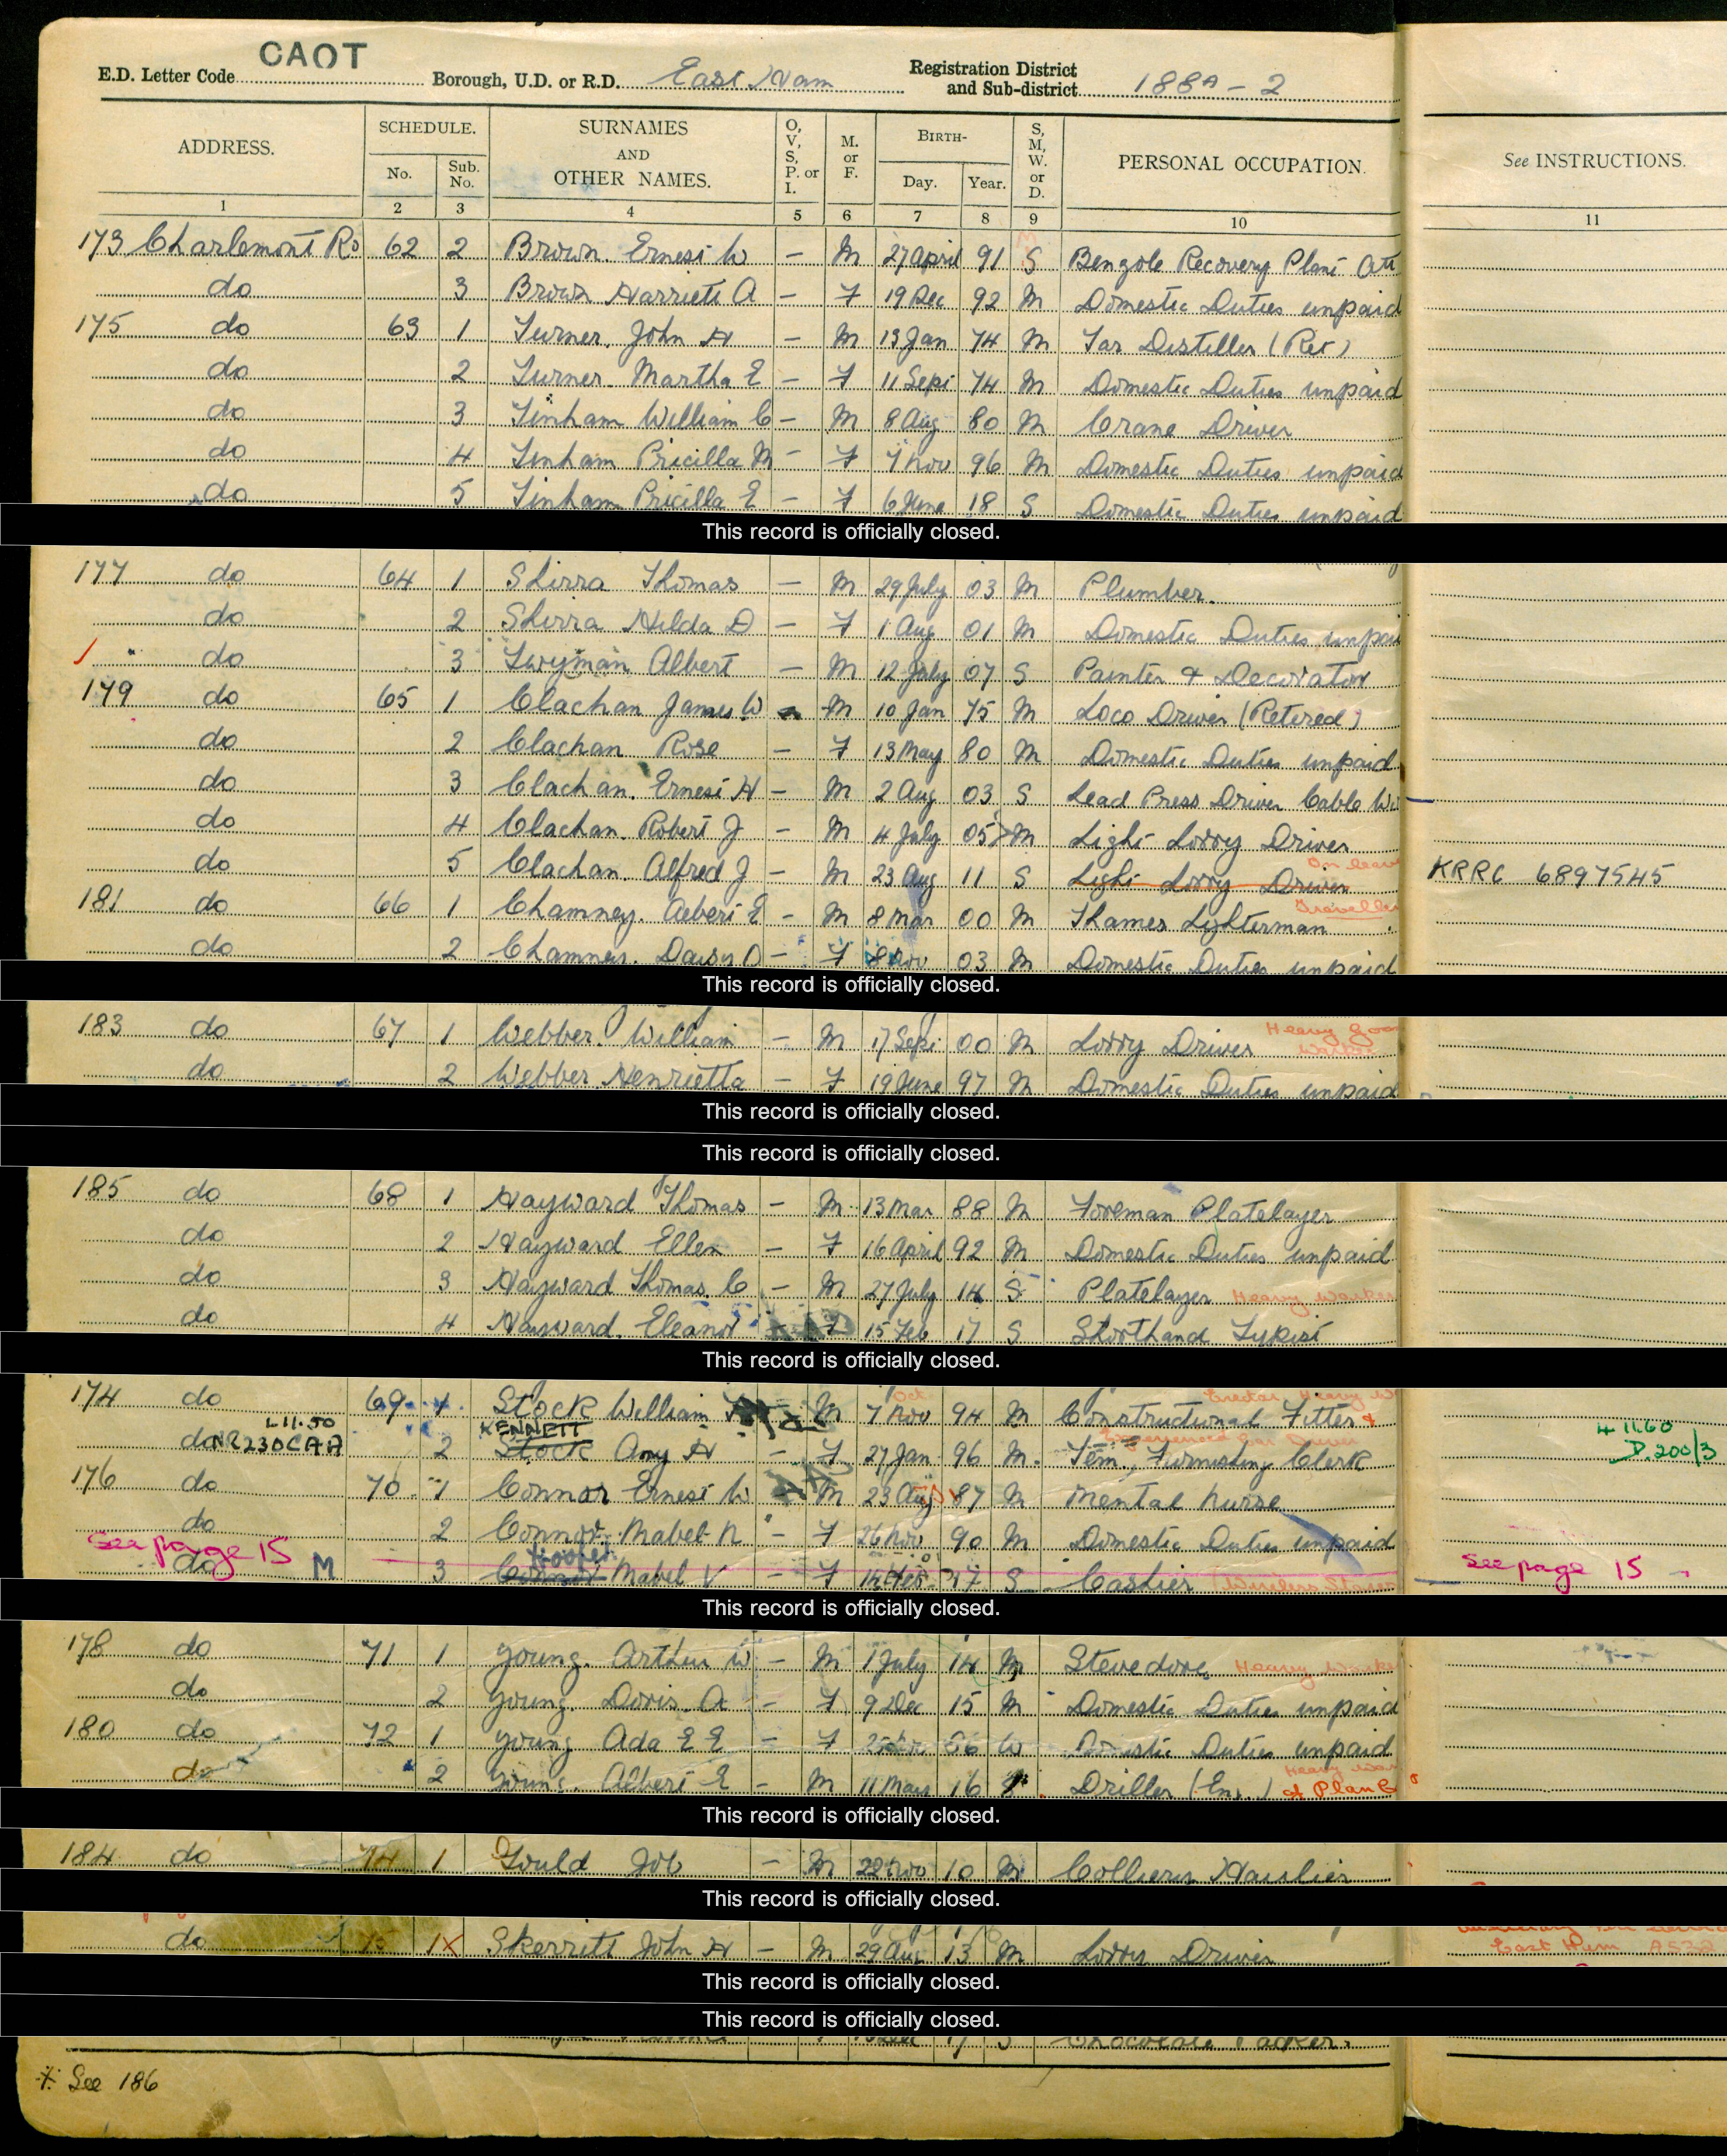 CAOT
E.D. Letter Code Borough, U.D. or R.D. East Ham Registration District and Sub-district 188A - 2
ADDRESS. SCHEDULE. No. Sub. No. SURNAMES AND OTHER NAMES. O, V, S, P. or I. M. or F. BIRTH- Day. Year. S, M, W. or D. PERSONAL OCCUPATION. See INSTRUCTIONS.
1 2 3 4 5 6 7 8 9 10 11
173 Charlemont Rd 62 2 Brown. Ernest W – M 27 April 91 S Benzole Recovery Plant Att
do 3 Brown Harriett A – F 19 Dec 92 M Domestic Duties unpaid
175 do 63 1 Turner. John H – M 13 Jan 74 M Tar Distiller (Ret)
do 2 Turner. Martha E – F 11 Sept 74 M Domestic Duties unpaid
do 3 Tinham William C – M 8 Aug 80 M Crane Driver
do 4 Tinham Pricilla M – F 7 Nov 96 M Domestic Duties unpaid
do 5 Tinham Pricilla E – F 6 June 18 S Domestic Duties unpaid
This record is officially closed.
177 do 64 1 Shirra Thomas – M 29 July 03 M Plumber.
do 2 Shirra Hilda D – F 1 Aug 01 M Domestic Duties unpai
do 3 Twyman Albert – M 12 July 07 S Painter & Decorator
179 do 65 1 Clachan James W – M 10 Jan 75 M Loco Driver (Retired)
do 2 Clachan Rose – F 13 May 80 M Domestic Duties unpaid
do 3 Clachan. Ernest H – M 2 Aug 03 S Lead Press Driver Cable
do 4 Clachan. Robert J – M 4 July 05 M Light Lorry Driver
On leave
do 5 Clachan. Alfred J – M 23 Aug 11 S Light Lorry Driver KRRC 6897545
Traveller
181 do 66 1 Chamney. Albert E – M 8 Mar 00 M Thames Lighterman
do 2 Chamney. Daisy O – F 8 Nov 03 M Domestic Duties unpaid
This record is officially closed.
183 do 67 1 Webber. William – M 17 Sept 00 M Lorry Driver Heavy
do 2 Webber Henrietta – F 19 June 97 M Domestic Duties unpaid
This record is officially closed.
This record is officially closed.
185 do 68 1 Hayward Thomas – M 13 Mar 88 M Foreman Platelayer
do 2 Hayward Ellen – F 16 April 92 M Domestic Duties unpaid
do 3 Hayward Thomas. C – M 27 July 14 S Platelayer Heavy Worker
do 4 Hayward. Eleanor – F 15 Feb 17 S Shorthand Typist
This record is officially closed.
Oct Erector Heavy W
174 do 69 1 Stock William – M 7 Nov 94 M Constructional Fitter &
L11.50 KENNETT 4 11.60
do NR230CAA 2 Stock Amy H – F 27 Jan 96 M. Tem., Furnishing Clerk D.200/3
176 do 70 1 Connor Ernest W M 23 Aug 87 M Mental Nurse
do 2 Connor Mabel N – F 26 Nov 90 M Domestic Duties unpaid
See page 15 Hooper see page 15
do M 3 Connor Mabel V – F 14 Feb 17 S Cashier
This record is officially closed.
178 do 71 1 Young. Arthur W – M 1 July 14 M Stevedore Heavy Worker
do 2 Young. Doris. A – F 9 Dec 15 M Domestic Duties unpaid
180 do 72 1 Young Ada E E – F 66 W Domestic Duties unpaid
do 2 Young. Albert E – M 11 May 16 S Driller
This record is officially closed.
184 do 74 1 Gould Job – M 22 Nov 10 M Colliery Haulier
This record is officially closed.
do 75 1X Skerritt John H – M 29 Aug 13 M Lorry Driver East Ham
This record is officially closed.
This record is officially closed.
17 S Chocolate Packer.
X See 186